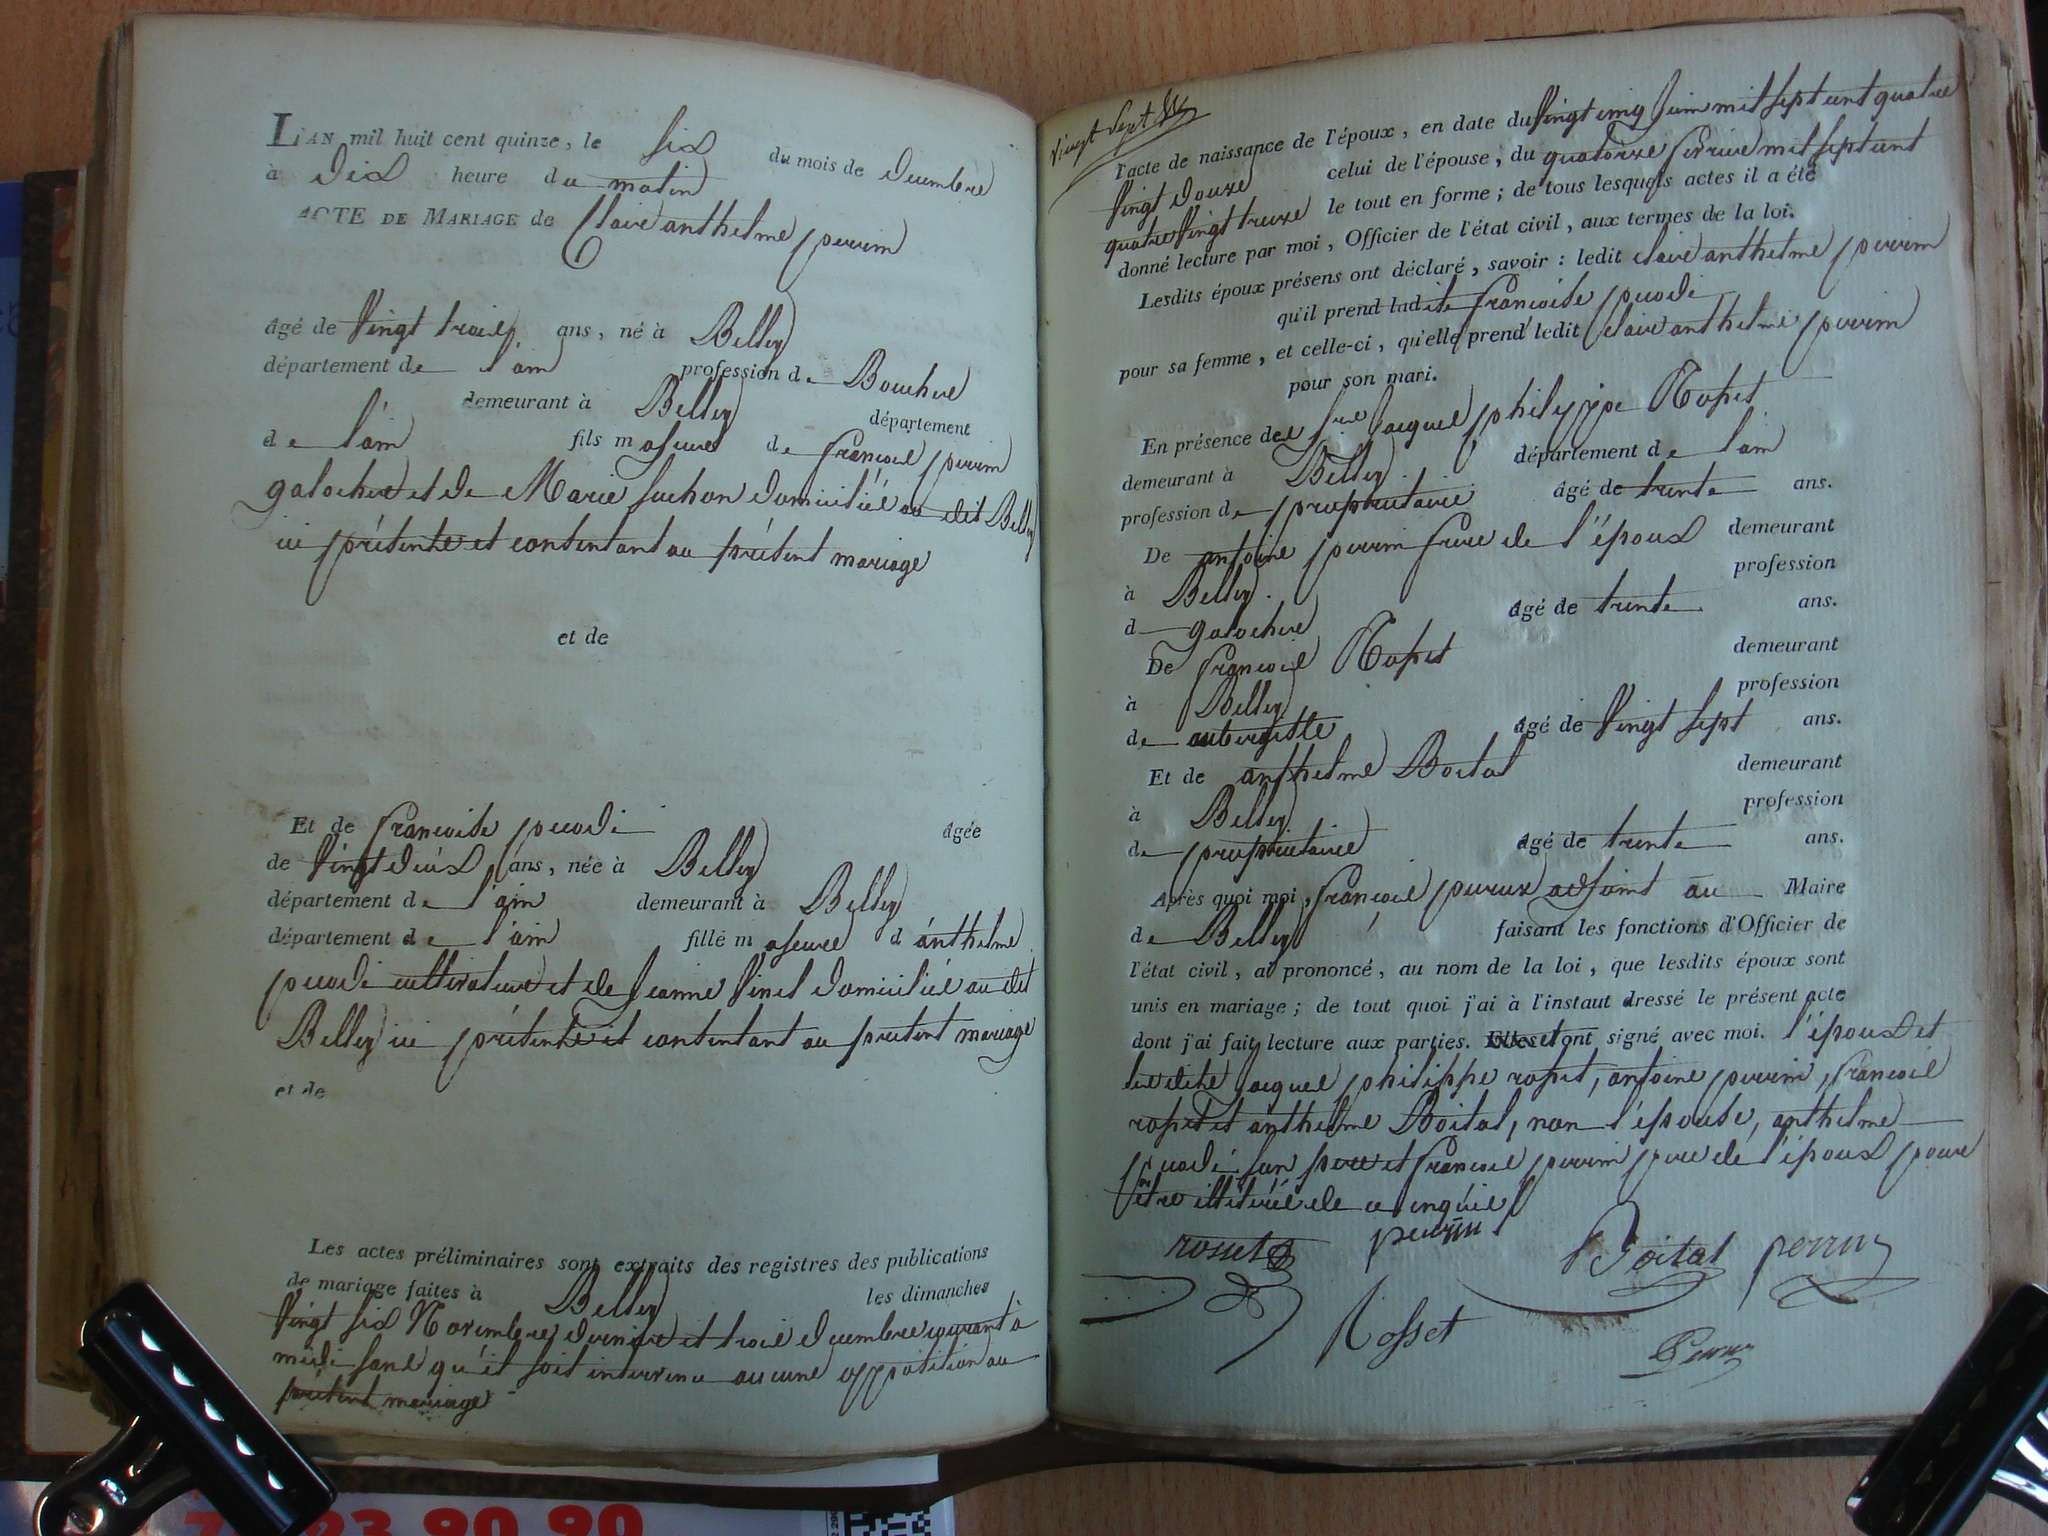 L'AN mil huit cent quinze, le six du mois de decembre
à dix heure du matin
ACTE DE MARIAGE de Claire anthelme perrin
âgé de vingt trois ans, né à Belley
département de l'ain profession de Boucher
demeurant à Belley département
de l'ain fils majeur de francois perrin
galocher et de Marie domicilié au dit Belley
ici présents et consentant au présent mariage
et de
Et de francoise pecodi âgée
de vingt deux ans, née à Belley
département de l'ain demeurant à Belley
département de l'ain fille majeure d'anthelme
pecodi cultivateur et de Jeanne Vinet domicilié au dit
Belley ici présents et consentant au présent mariage
et de
Les actes préliminaires sont extraits des registres des publications
de mariage faites à Belley les dimanches
vingt six Novembre dernier et trois decembre courant à
midi sans qu'il soit intervenu aucune opposition au
présent mariage
vingt sept
l'acte de naissance de l'époux, en date du vingt cinq Juin mil sept cent quatre
vingt douze celui de l'épouse, du quatorze fevrier mil sept cent
quatre vingt treize le tout en forme; de tous lesquels actes il a été
donné lecture par moi, Officier de l'état civil, aux termes de la loi.
Lesdits époux présens ont déclaré, savoir: ledit claire anthelme perrin
qu'il prend ladite francoise pecodi
pour sa femme, et celle-ci, qu'elle prend ledit claire anthelme perrin
pour son mari.
En présence de jacques philippe Rosset
demeurant à Belley département de l'ain
profession de propriétaire âgé de trente ans.
De antoine perrin frere de l'époux demeurant
à Belley profession
d galocher âgé de trente ans.
De francois Rosset demeurant
à Belley profession
de aubergiste âgé de vingt sept ans.
Et de anthelme Boital demeurant
à Belley profession
de propriétaire âgé de trente ans.
Après quoi moi, francois adjoint au Maire
de Belley faisant les fonctions d'Officier de
l'état civil, ai prononcé, au nom de la loi, que lesdits époux sont
unis en mariage; de tout quoi j'ai à l'instaut dressé le présent acte
dont j'ai fait lecture aux parties. Elles et ont signé avec moi. l'époux et
lesdits jacques philippe rosset, antoine perrin, francois
rosset et anthelme Boital, non l'épouse, anthelme
pecodi son pere et francois perrin pere de l'époux pour
etre illitérés de ce enquis
rosset perrin Boital perrin
Rosset